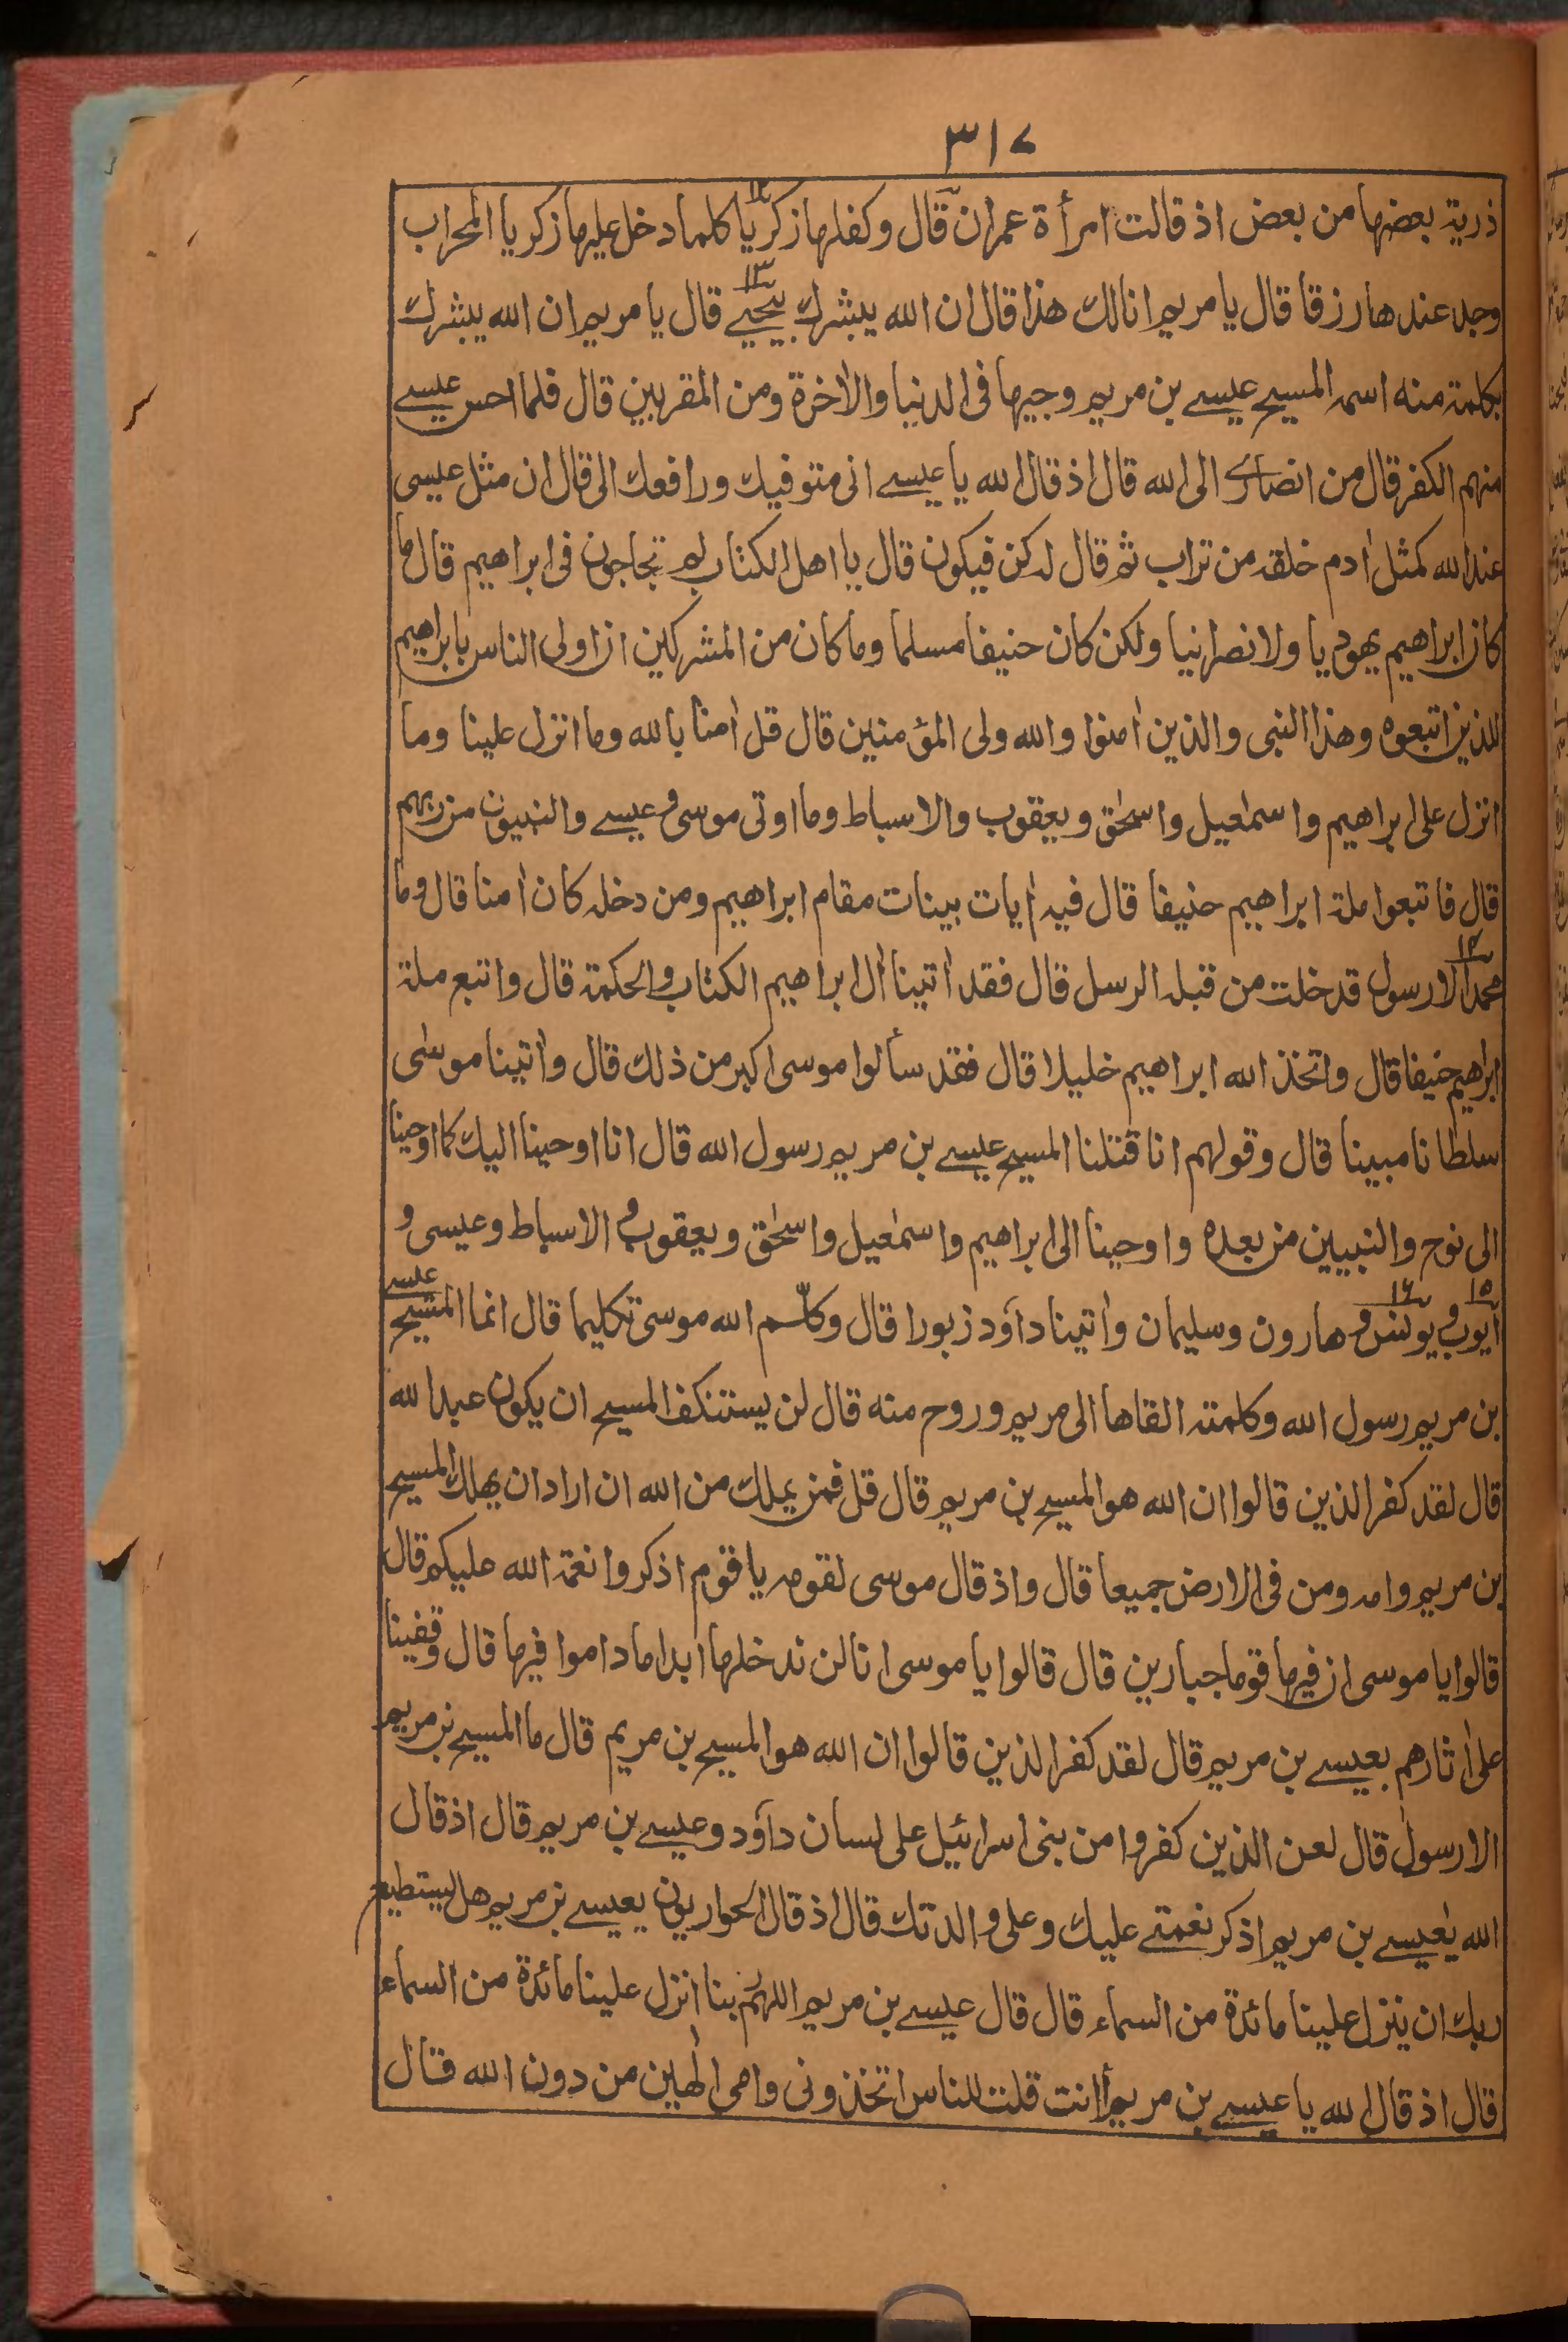 ٣١٧
ذرية بعضها من بعض اذ قالت امرأة عمران قال وكفلها زكريا كلما دخل عليها زكريا المحراب
١٢
وجد عندها رزقا قال يا مريم انا لك هذا قال ان الله يبشرك بيحيے قال يا مريم ان الله يبشرك
١٣
بكلمة منه اسمه المسيح عيسے بن مريم وجيها فى الدنيا والاٰخرة ومن المقربين قال فلما احس عيسے
منهم الكفر قال من انصارے الى الله قال اذ قال الله يا عيسے انى متوفيك ورافعك الى قال ان مثل عيسى
عند الله كمثل اٰدم خلقه من تراب ثم قال له كن فيكون قال يا اهل الكتاب لم تحاجون فى ابراهيم قال ما
كان ابراهيم يهوديا ولا نصرانيا ولكن كان حنيفا مسلما وما كان من المشركين ان اولى الناس بابراهيم
للذين اتبعوه وهذا النبى والذين اٰمنوا والله ولى المؤمنين قال قل اٰمنا بالله وما انزل علينا وما
انزل على ابراهيم واسمٰعيل واسحٰق ويعقوب والاسباط وما اوتى موسى وعيسے والنبيون من ربهم
قال فاتبعوا ملة ابراهيم حنيفا قال فيه اٰيات بينات مقام ابراهيم ومن دخله كان اٰمنا قال وما
١٤
محمد الا رسول قد خلت من قبله الرسل قال فقد اٰتينا اٰل ابراهيم الكتاب والحكمة قال واتبع ملة
ابرٰهيم حنيفا قال واتخذ الله ابراهيم خليلا قال فقد سألوا موسى اكبر من ذلك قال واٰتينا موسٰى
سلطانا مبينا قال وقولهم انا قتلنا المسيح عيسے بن مريم رسول الله قال انا اوحينا اليك كما اوحينا
الى نوح والنبيين من بعده واوحينا الى ابراهيم واسمٰعيل واسحٰق ويعقوب والاسباط وعيسى و
١٥ ١٦
ايوب ويونس وهارون وسليمان واٰتينا داۤود زبورا قال وكلّم الله موسى تكليما قال انما المسيح عيسے
بن مريم رسول الله وكلمته القاها الى مريم وروح منه قال لن يستنكف المسيح ان يكون عبدا لله
قال لقد كفر الذين قالوا ان الله هو المسيح بن مريم قال قل فمن يملك من الله ان اراد ان يهلك المسيح
بن مريم وامه ومن فى الارض جميعا قال واذ قال موسى لقومه يا قوم اذكروا نعمة الله عليكم قال
قالوا يا موسى ان فيها قوما جبارين قال قالوا يا موسى انا لن ندخلها ابدا ما داموا فيها قال وقفينا
على اٰثارهم بعيسے بن مريم قال لقد كفر الذين قالوا ان الله هو المسيح بن مريم قال ما المسيح بن مريم
الا رسول قال لعن الذين كفروا من بنى اسرائيل على لسان داۤود وعيسے بن مريم قال اذ قال
الله يٰعيسے بن مريم اذكر نعمتے عليك وعلى والدتك قال اذ قال الحواريون يعيسے بن مريم هل يستطيع
ربك ان ينزل علينا مائدة من السماء قال قال عيسے بن مريم اللهم ربنا انزل علينا مائدة من السماء
قال اذ قال الله يا عيسے بن مريم أانت قلت للناس اتخذونى وامى الٰهين من دون الله قال